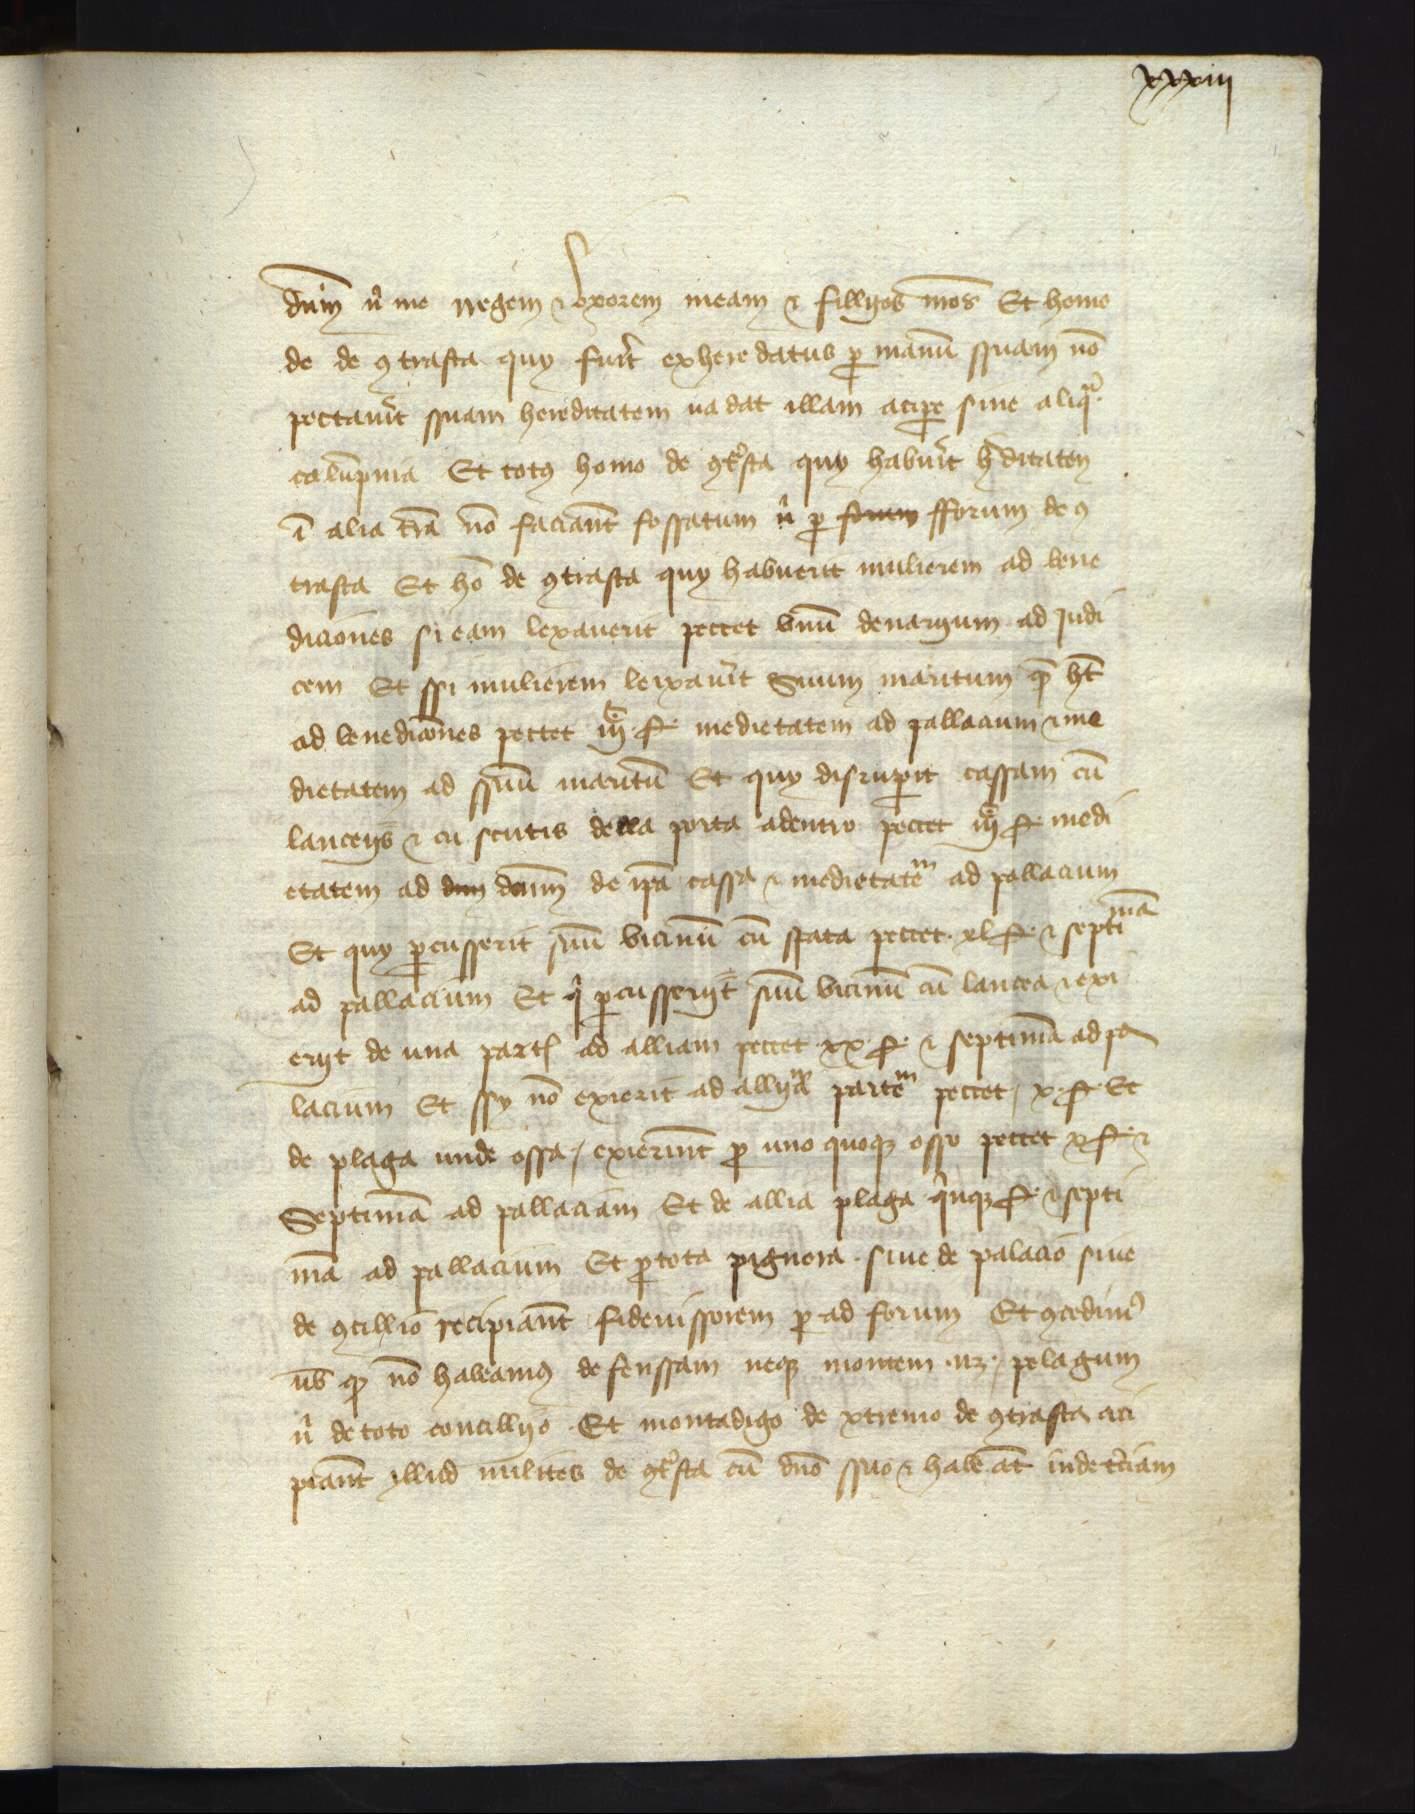 xxxiii
dnm̃ nͥ me rregem ⁊ vxorem meam ⁊ fillyos mos̃ Et homo
de de ꝯtrasta quy fuer̃t exheredatus ꝑ manũ ssuam nõ
pectauer̃t ssuam hereditatem vadat illam acipe sine aliqͣ
calũpnia Et totꝯ homo de ꝯtͣsta quy habuer̃t h̃ditatem
ĩ alia tr̃a nõ faciant̃ fossatum nͥ ꝑ forum fforum de ꝯ
trasta Et hõ de ꝯtrasta quy habuerit mulierem ad bene
diciones si eam lexauerit pectet vnũ denaryum ad Judi
cem Et ssi mulierem leixauer̃t Suum maritum qͣ̃ ht̃
ad benedicõnes pectet iijͨ ſ medietatem ad pallacium ⁊ me
dietatem ad ssuũ maritũ Et quy disrupit cassam cũ
lanceijs ⁊ cũ scutis de lla porta adentro pectet iijͨ ſ medi
etatem ad dnm dnm̃ de ip̃a cassa ⁊ medietateᵐ ad pallacium
Et quy ꝑcusserit suũ vicinũ cũ spata pectet xl ſ ⁊ septimã
ad pallacium Et qͥ ꝑcusseryt̃ suũ vicinũ cũ lancea ⁊ exi
eryt de una parte ad alliam pectet xx ſ ⁊ septimã ad pa
lacium Et ssy nõ exierit ad allyã parteᵐ pectet x ſ Et
de plaga unde ossa exierint̃ ꝑ uno quoqꝫ osso pectet x ſ ⁊
Septimã ad pallaciam Et de allia plaga qͥnqꝫ ſ ⁊ septi
mã ad pallacium Et ꝑ tota pignora siue de palacio siue
de ꝯcillio recipiant̃ fideiussorem ꝑ ad forum Et ꝯcedimꝯ
ub̃ qꝫ nõ habeamꝯ defenssam neqꝫ montem nͥ pelagum
nͥ de toto concillyo Et montadigo de xtremo de ꝯtrasta aci
piant̃ yllud milites de ꝯtͣsta cũ dño ssuo ⁊ habeãt inde tr̃ciam